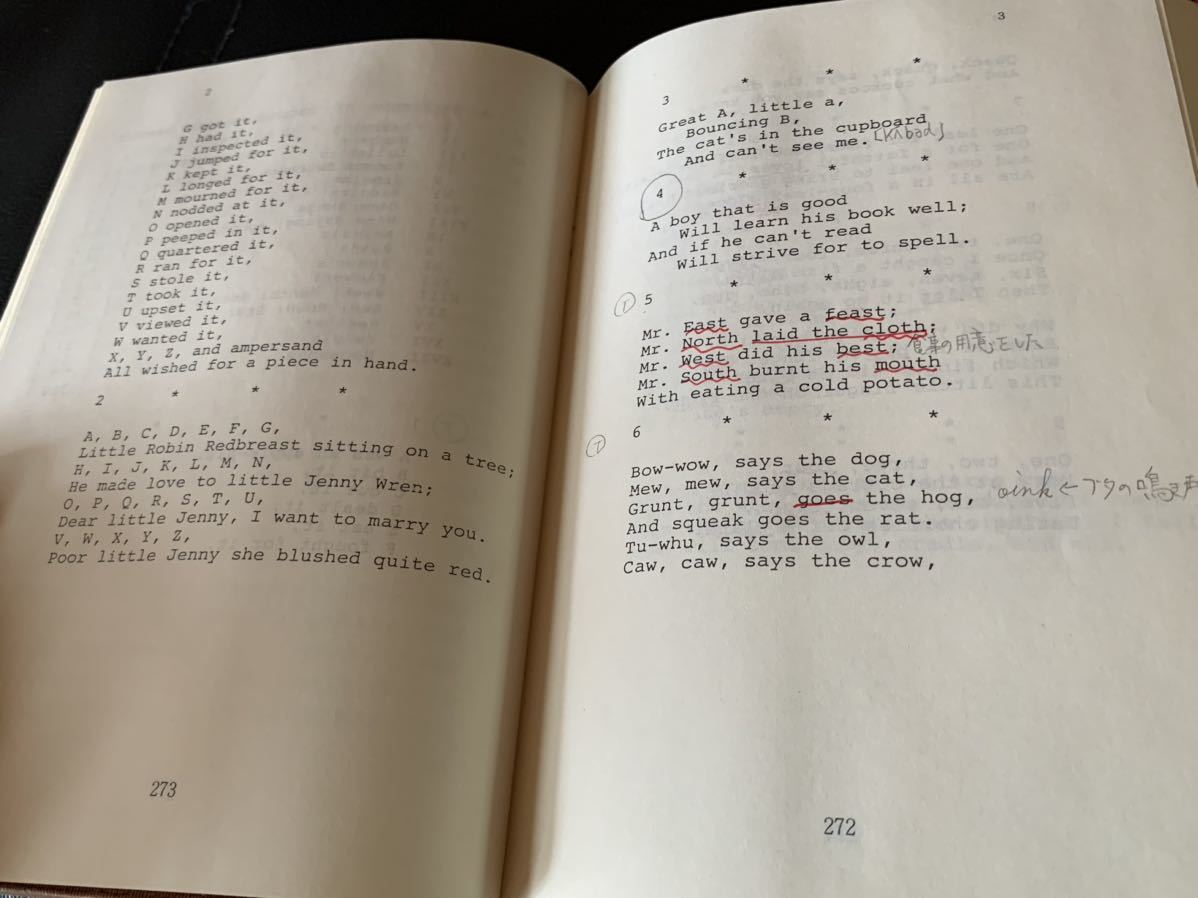 2
G got it,
H had it,
I inspected it,
J jumped for it,
K kept it,
L longed for it,
M mourned for it,
N nodded at it,
O opened it,
P peeped in it,
Q quartered it,
R ran for it,
S stole it,
T took it,
U upset it,
V viewed it,
W wanted it,
X, Y, Z, and ampersand
All wished for a piece in hand.
* * *
2
A, B, C, D, E, F, G,
Little Robin Redbreast sitting on a tree;
H, I, J, K, L, M, N,
He made love to little Jenny Wren;
O, P, Q, R, S, T, U,
Dear little Jenny, I want to marry you.
V, W, X, Y, Z,
Poor little Jenny she blushed quite red.
273
3
* * *
3
Great A, little a,
Bouncing B,
The cat's in the cupboard
And can't see me.
* * *
4
A boy that is good
Will learn his book well;
And if he can't read
Will strive for to spell.
* * *
5
Mr. East gave a feast;
Mr. North laid the cloth;
Mr. West did his best; 食事の用意をした
Mr. South burnt his mouth
With eating a cold potato.
* * *
6
Bow-wow, says the dog,
Mew, mew, says the cat,
Grunt, grunt, goes the hog, oink ← ブタの鳴き声
And squeak goes the rat.
Tu-whu, says the owl,
Caw, caw, says the crow,
272